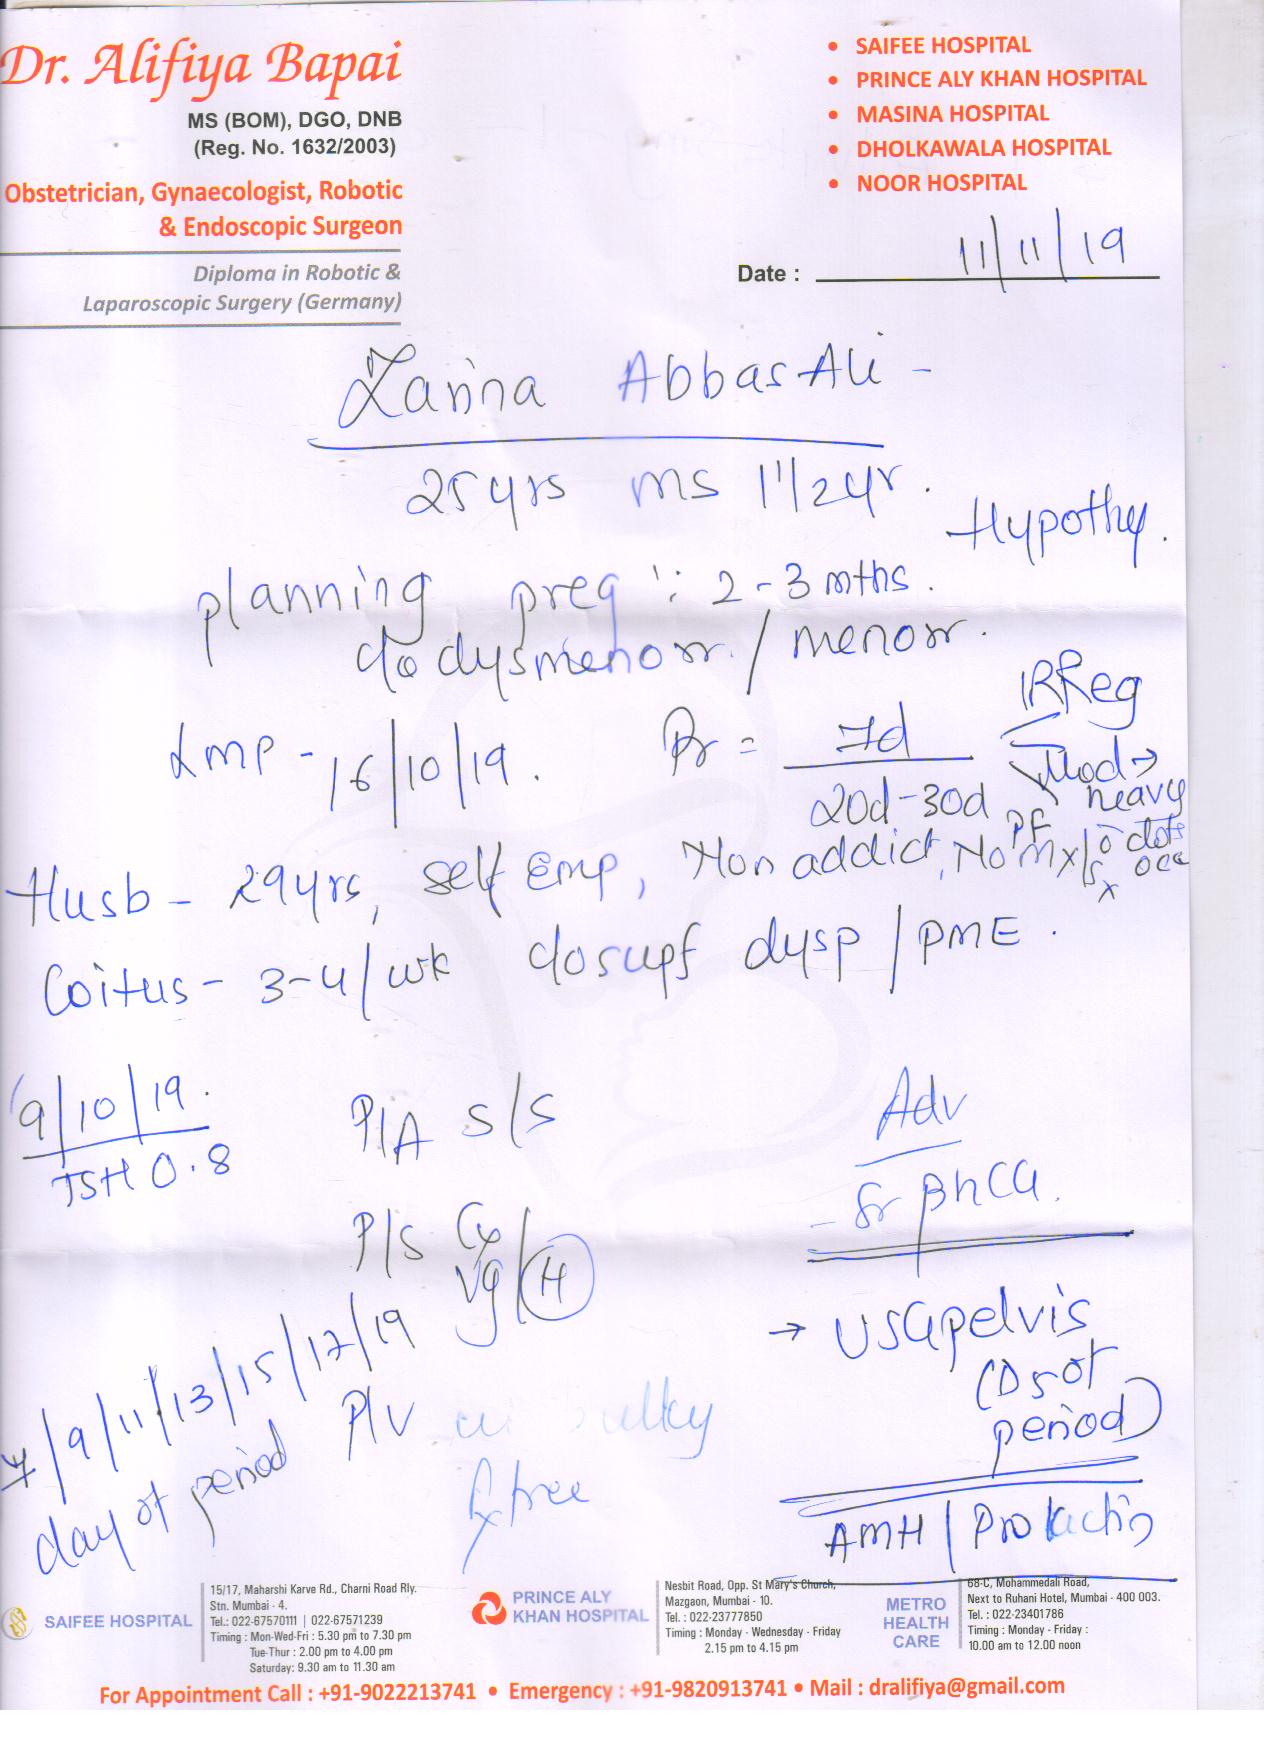 Dr. Alifiya Bapai
MS (BOM), DGO, DNB
(Reg. No. 1632/2003)
Obstetrician, Gynaecologist, Robotic
& Endoscopic Surgeon
Diploma in Robotic &
Laparoscopic Surgery (Germany)
• SAIFEE HOSPITAL
• PRINCE ALY KHAN HOSPITAL
• MASINA HOSPITAL
• DHOLKAWALA HOSPITAL
• NOOR HOSPITAL
Date : 11/11/19
Zarina Abbas Ali -
25yrs ms 1 1/2 yr.
Hypothy.
planning preg 2-3 mths.
c/o dysmenorr. / menorr.
LMP - 16/10/19. Pr = 7d / 20d-30d
IRReg
Mod → heavy
PF
Husb - 29yrs, self Emp, Non addict, No Mx/Sx
Coitus - 3-4/wk c/o supf dysp / PME.
9/10/19.
TSH 0.8
P/A S/S
P/S Cx
Vg / H
P/V bulky
Fx free
7/9/11/13/15/17/19
day of period
Adv
- Sr βhCG.
→ USG pelvis
(D5 of
period)
AMH / Prolactin
SAIFEE HOSPITAL
15/17, Maharshi Karve Rd., Charni Road Rly.
Stn. Mumbai - 4.
Tel.: 022-67570111 | 022-67571239
Timing : Mon-Wed-Fri : 5.30 pm to 7.30 pm
Tue-Thur : 2.00 pm to 4.00 pm
Saturday: 9.30 am to 11.30 am
PRINCE ALY
KHAN HOSPITAL
Nesbit Road, Opp. St Mary's Church,
Mazgaon, Mumbai - 10.
Tel. : 022-23777850
Timing : Monday - Wednesday - Friday
2.15 pm to 4.15 pm
METRO
HEALTH
CARE
68-C, Mohammedali Road,
Next to Ruhani Hotel, Mumbai - 400 003.
Tel. : 022-23401786
Timing : Monday - Friday :
10.00 am to 12.00 noon
For Appointment Call : +91-9022213741 • Emergency : +91-9820913741 • Mail : dralifiya@gmail.com